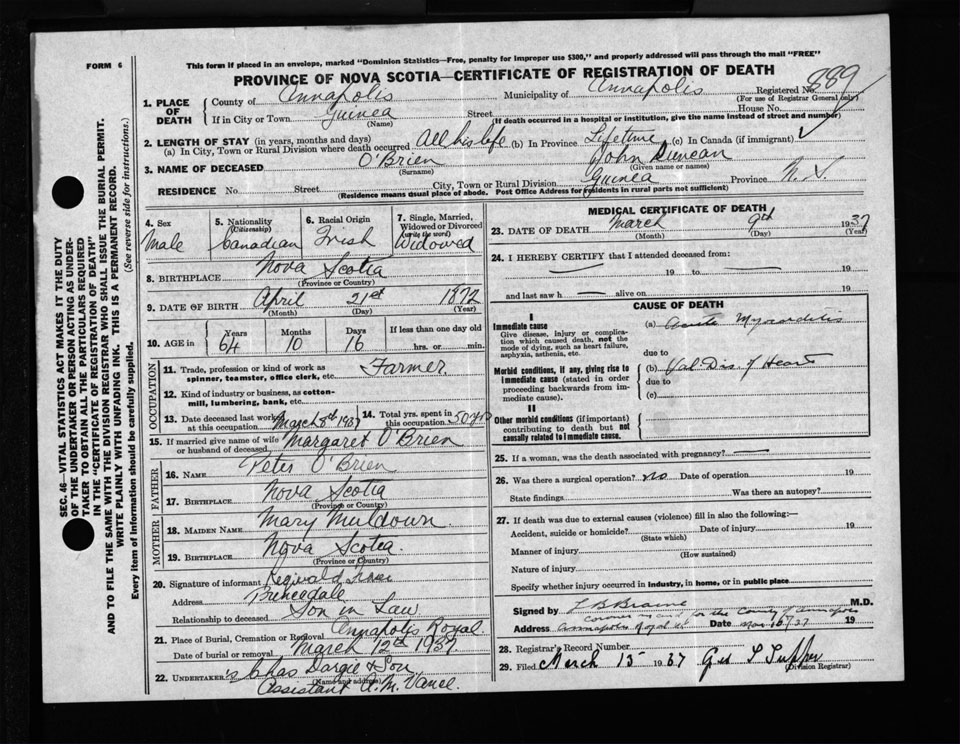 FORM 6
This form if placed in an envelope, marked "Dominion Statistics—Free, penalty for improper use $300," and properly addressed will pass through the mail "FREE"
PROVINCE OF NOVA SCOTIA—CERTIFICATE OF REGISTRATION OF DEATH
Registered No. 889
(For use of Registrar General only)
1. PLACE OF DEATH
County of Annapolis Municipality of Annapolis
If in City or Town Guinea Street House No.
(Name) (If death occurred in a hospital or institution, give the name instead of street and number)
2. LENGTH OF STAY (in years, months and days)
(a) In City, Town or Rural Division where death occurred All his life (b) In Province Lifetime (c) In Canada (if immigrant)
3. NAME OF DECEASED O'Brien John Duncan
(Surname) (Given name or names)
RESIDENCE No. Street City, Town or Rural Division Guinea Province N.S.
(Residence means usual place of abode. Post Office Address for residents in rural parts not sufficient)
4. Sex Male
5. Nationality (Citizenship) Canadian
6. Racial Origin Irish
7. Single, Married, Widowed or Divorced (write the word) Widowed
8. BIRTHPLACE Nova Scotia
(Province or Country)
9. DATE OF BIRTH April 21st 1872
(Month) (Day) (Year)
10. AGE in Years 64 Months 10 Days 16 If less than one day old hrs. or min.
OCCUPATION
11. Trade, profession or kind of work as spinner, teamster, office clerk, etc. Farmer.
12. Kind of industry or business, as cotton-mill, lumbering, bank, etc.
13. Date deceased last worked at this occupation March 8th 1937
14. Total yrs. spent in this occupation 50 yrs
15. If married give name of wife or husband of deceased Margaret O'Brien
FATHER
16. NAME Peter O'Brien
17. BIRTHPLACE Nova Scotia
(Province or Country)
MOTHER
18. MAIDEN NAME Mary Muldown.
19. BIRTHPLACE Nova Scotia.
(Province or Country)
20. Signature of informant Reginald
Address Princedale
Relationship to deceased Son in Law
21. Place of Burial, Cremation or Removal Annapolis Royal.
Date of burial or removal March 12th 1937
22. UNDERTAKER'S Chas Dargie & Son
(Name and Address)
Assistant A. M. Vance.
MEDICAL CERTIFICATE OF DEATH
23. DATE OF DEATH March 9th 1937
(Month) (Day) (Year)
24. I HEREBY CERTIFY that I attended deceased from:
— 19 to — 19
and last saw h — alive on 19
CAUSE OF DEATH
I
Immediate cause
Give disease, injury or complication which caused death, not the mode of dying, such as heart failure, asphyxia, asthenia, etc.
(a) Acute Myocarditis
due to
Morbid conditions, if any, giving rise to immediate cause (stated in order proceeding backwards from immediate cause).
(b) Val. Dis. of Heart
due to
(c)
II
Other morbid conditions (if important) contributing to death but not causally related to immediate cause.
25. If a woman, was the death associated with pregnancy? —
26. Was there a surgical operation? no Date of operation 19
State findings Was there an autopsy?
27. If death was due to external causes (violence) fill in also the following:—
Accident, suicide or homicide? Date of injury 19
(State which)
Manner of injury
(How sustained)
Nature of injury
Specify whether injury occurred in industry, in home, or in public place
Signed by L B Braine M.D.
Coroner in and for the County of Annapolis
Address Annapolis Royal NS Date 19
28. Registrar's Record Number
29. Filed March 15 1937 Geo L Tupper
(Division Registrar)
SEC. 46—VITAL STATISTICS ACT MAKES IT THE DUTY
OF THE UNDERTAKER OR PERSON ACTING AS UNDER-
TAKER TO OBTAIN ALL THE PARTICULARS REQUIRED
IN THE "CERTIFICATE OF REGISTRATION OF DEATH"
AND TO FILE THE SAME WITH THE DIVISION REGISTRAR WHO SHALL ISSUE THE BURIAL PERMIT.
WRITE PLAINLY WITH UNFADING INK. THIS IS A PERMANENT RECORD.
Every item of information should be carefully supplied. (See reverse side for instructions.)